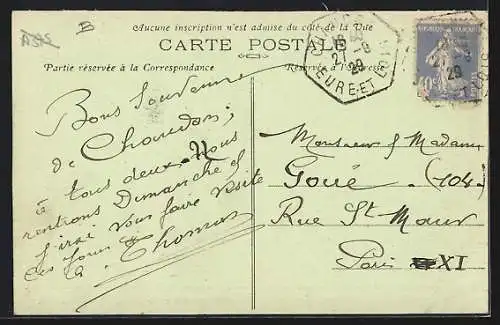 B
Aucune inscription n'est admise du côté de la Vue
CARTE POSTALE
Partie réservée à la Correspondance
Réservée à l'Adresse
Bons Souvenirs
de Chaudon;
à tous deux. Nous
rentrons Dimanche et
j'irai vous faire visite
ces jours
Thomas
Monsieur & Madame
Goué (104)
Rue St Maur
Paris XI
21
29
EURE-ET-LOIR
40c
29